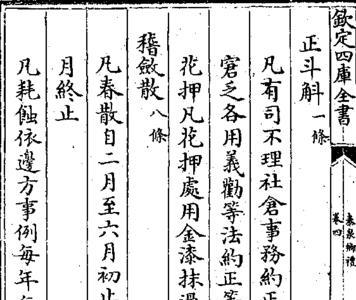 欽定四庫全書
泰泉鄉禮
卷四
正斗斛一條
凡有司不理社倉事務約正
窘乏各用義勸等法約正等
花押凡花押處用金漆抹過
稽斂散八條
凡春散自二月至六月初止
月終止
凡耗蝕依邊方事例每年每